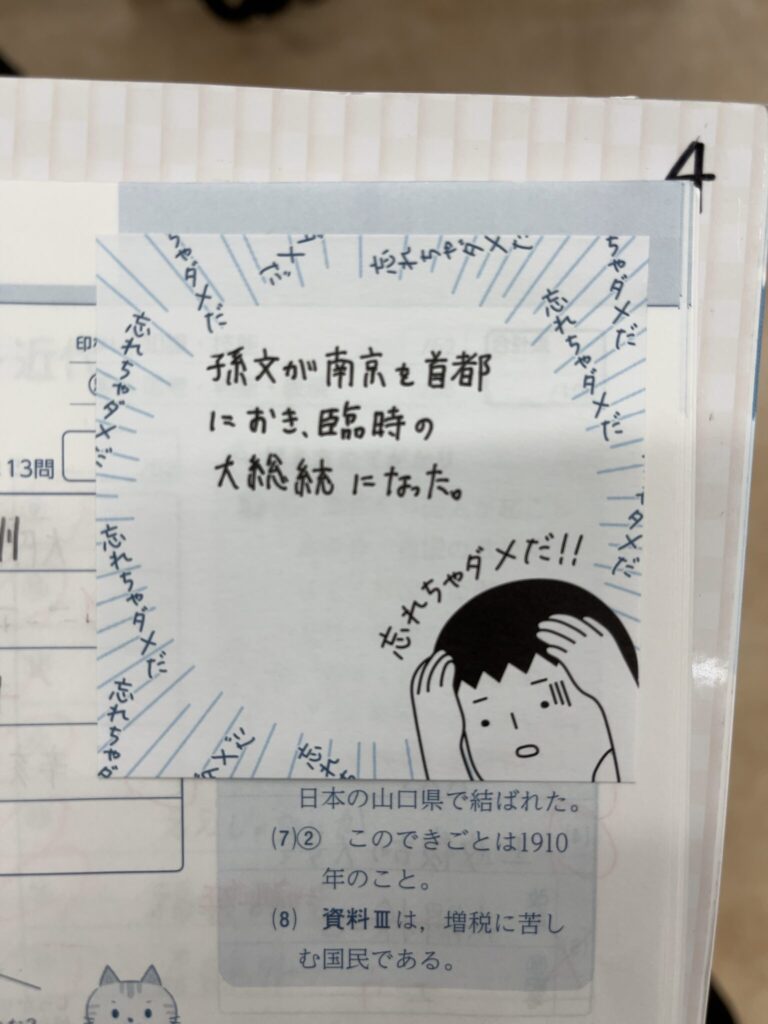 4
ちゃダメだ
ダメだ
忘れちゃダメだ
ちゃダメだ
忘れちゃダメだ
忘れちゃダメだ
孫文が南京を首都
におき、臨時の
大総統になった。
13問
州
ダメだ
忘れちゃダメだ
忘れちゃダメだ!!
忘れちゃ
ダメだ
忘れ
日本の山口県で結ばれた。
(7)② このできごとは1910
年のこと。
(8) 資料Ⅲは，増税に苦し
む国民である。